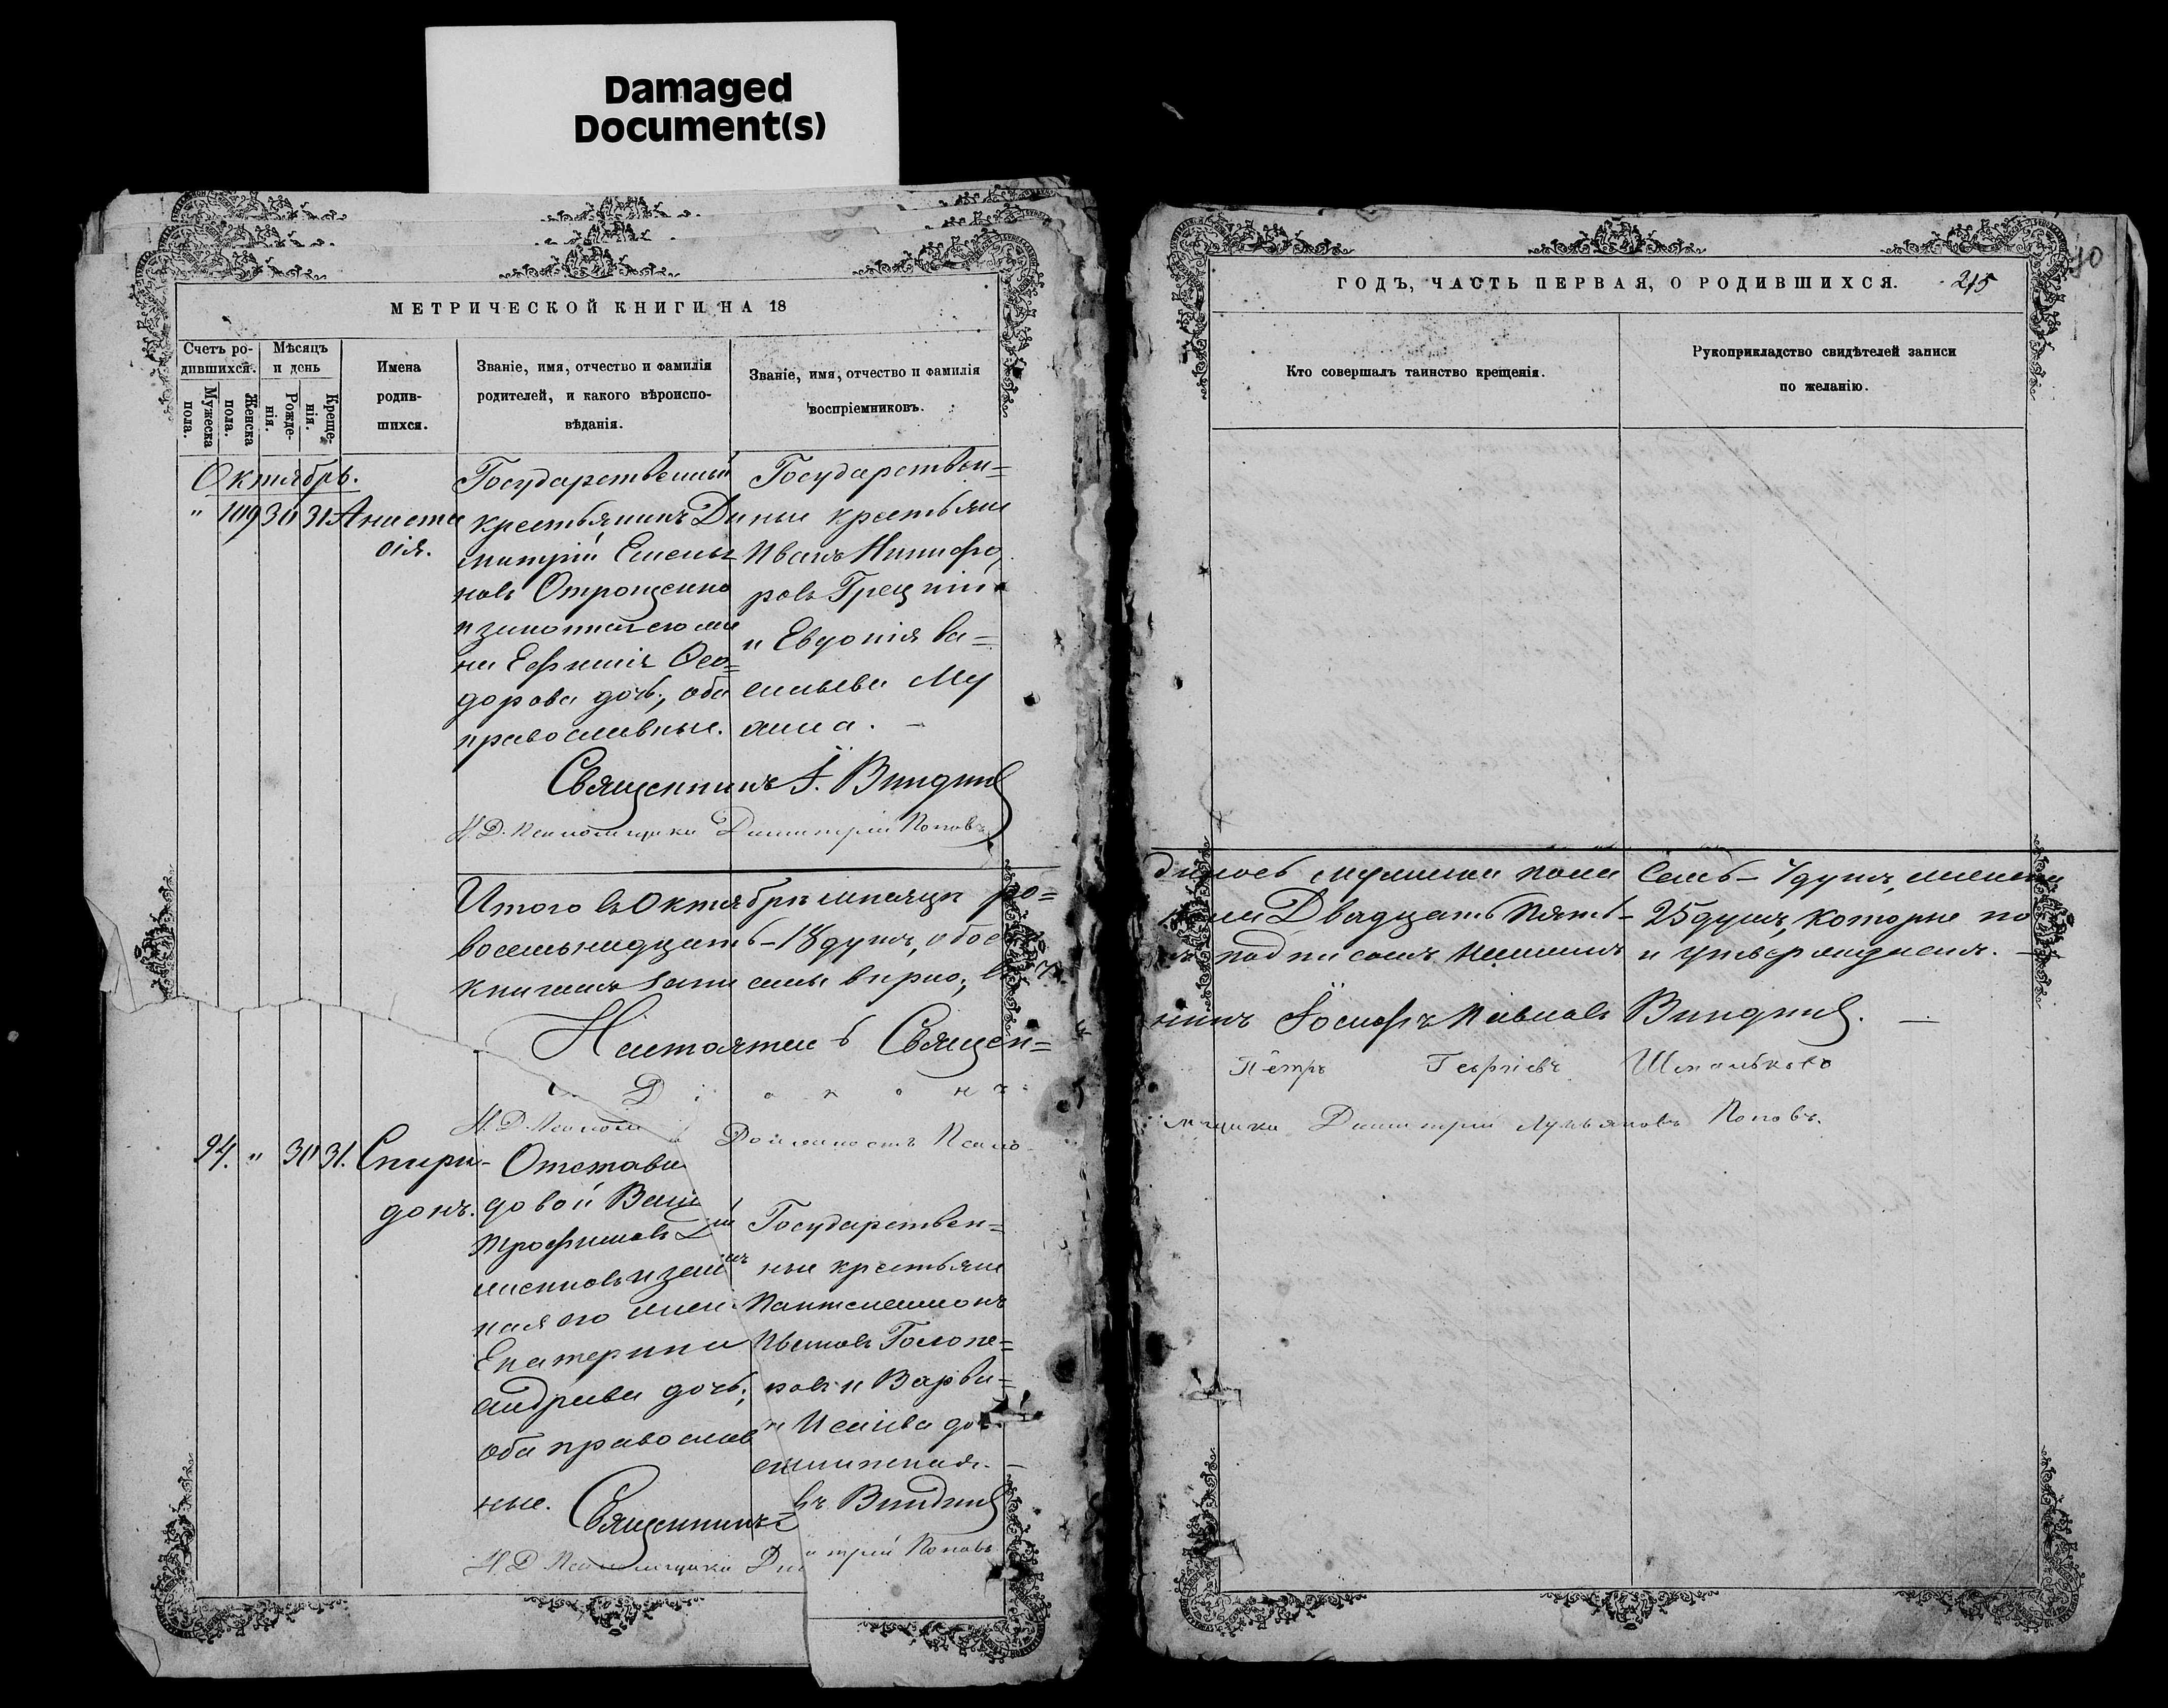 Damaged
Document(s)
МЕТРИЧЕСКОЙ КНИГИ НА 18
Счетъ ро-
дившихся.
Мѣсяцъ
и день
Мужеска
пола.
Женска
пола.
Рожде-
нія.
Креще-
нія.
Имена
родив-
шихся.
Званіе, имя, отчество и фамилія
родителей, и какого вѣроиспо-
вѣданія.
Званіе, имя, отчество и фамилія
воспріемниковъ.
Октябрь.
" 109 30 31 Анаста
сія.
Государственный
крестьянинъ Ди
митрій Емелья
новъ Отрощенко
и законная его же
на Евфимія Ѳео=
дорова дочь, оба
православные.
Государствен=
ные крестьяне
Иванъ Никифо
ровъ Грецкій
и Евдокія Ва=
сильева
Священникъ І. Виндинъ
И. Д. Псаломщика Димитрій Поповъ
Итого въ Октябрѣ мѣсяцѣ ро=
восемьнадцать – 18 душъ, обое
книгамъ записаны вѣрно,
Настоятель Священ=
Діаконъ
И. Д. Псалом
Должность Псало
94. " 30 31. Спири-
донъ.
Отставн
довой Васи
Трофимовъ
его жен
Екатерина
Андреева дочь;
оба православ
ные.
Государствен=
ные крестьяне
Пантелеимонъ
Ивановъ Голопе=
ровъ и Варва=
Исаіева
Священникъ
въ Виндинъ
И. Д. Псаломщика Ди
итрій Поповъ
ГОДЪ, ЧАСТЬ ПЕРВАЯ, О РОДИВШИХСЯ.
215
Кто совершалъ таинство крещенія.
Рукоприкладство свидѣтелей записи
по желанію.
дилось мужеска пола Семь – 7 душъ, женска
Двадцать Пять – 25 душъ, которые по
подписомъ нашимъ и утверждаемъ. —
никъ Іосифъ Павловъ Виндинъ. —
Петръ Георгіевъ
мщика Димитрій Лукьяновъ Поповъ.